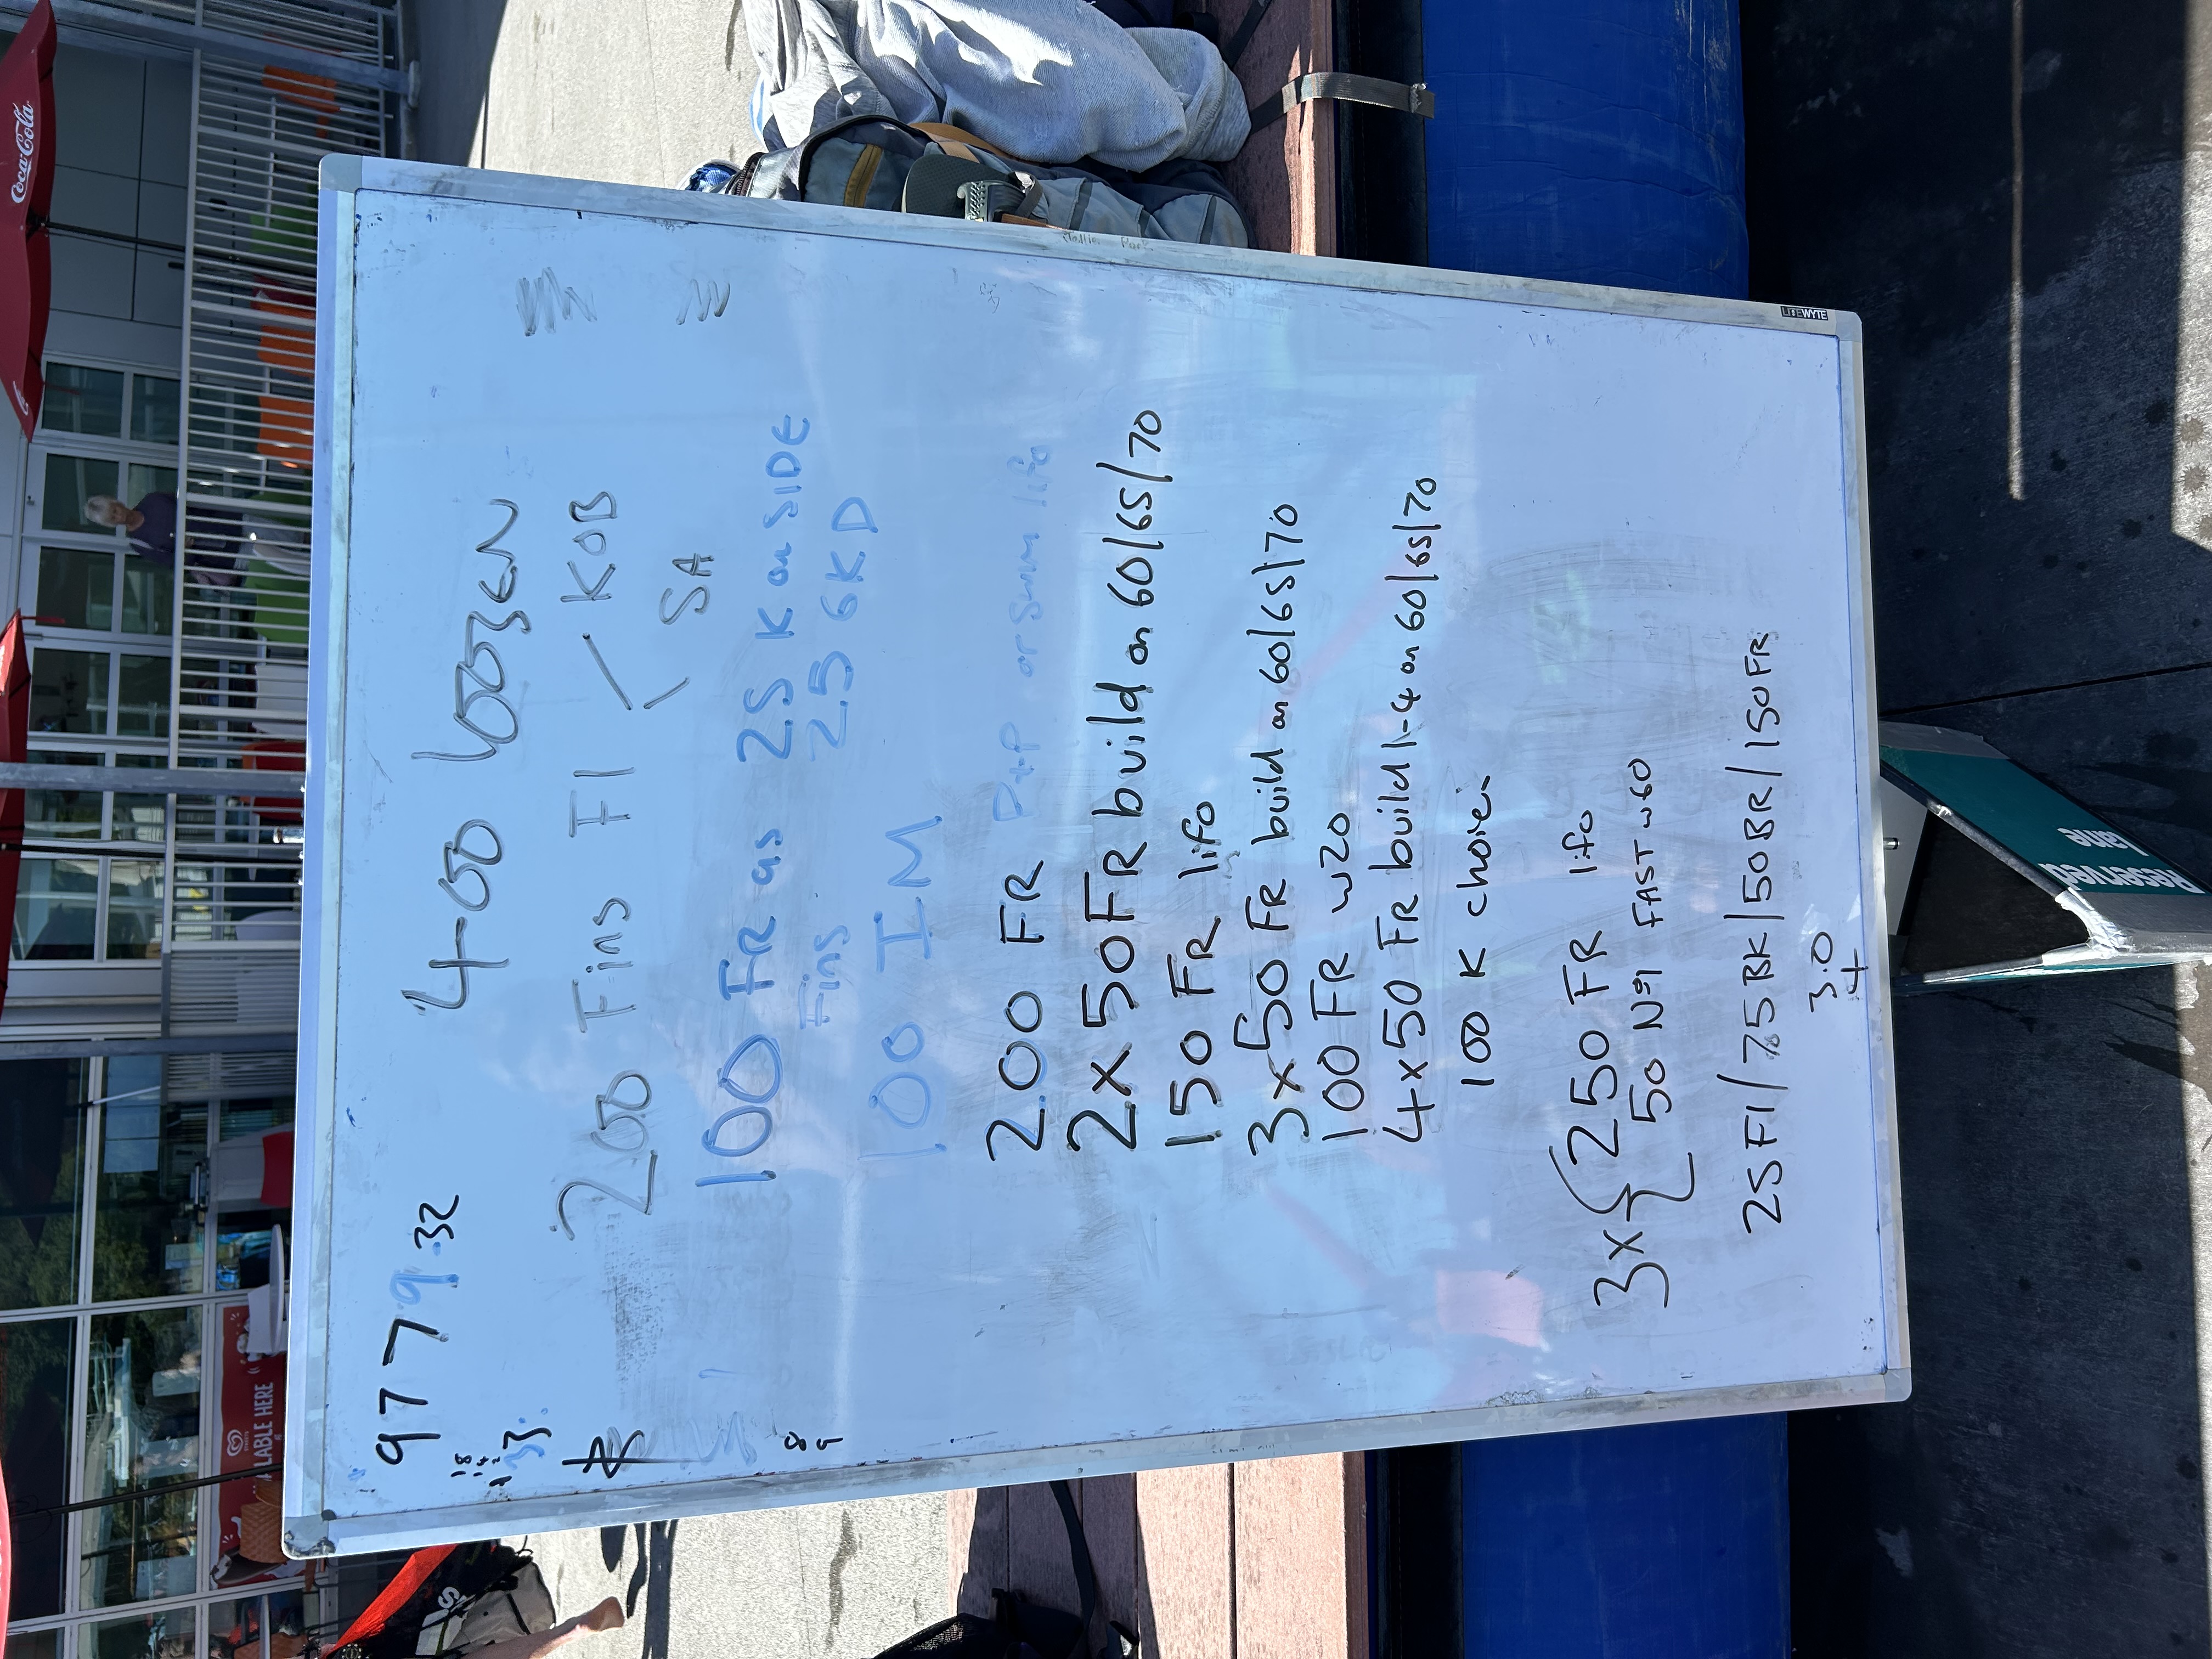 97 7.9.32
400 LOOSEN
200 Fins FI / KOB
\ SA
100 FR as 25 K on SIDE
Fins 25 6KD
100 IM
200 FR P+P or swim lifo
2x50FR build on 60/65/70
150 FR lifo
3x50 FR build on 60/65/70
100 FR w20
4x50 FR build 1-4 on 60/65/70
100 K choice
3x{250 FR lifo
50 Nº1 FAST w60
25FI/75BK/50BR/150FR
3.0
4
33.
8
LITEWYTE
Coca-Cola
LABLE HERE
Reserved
Lane